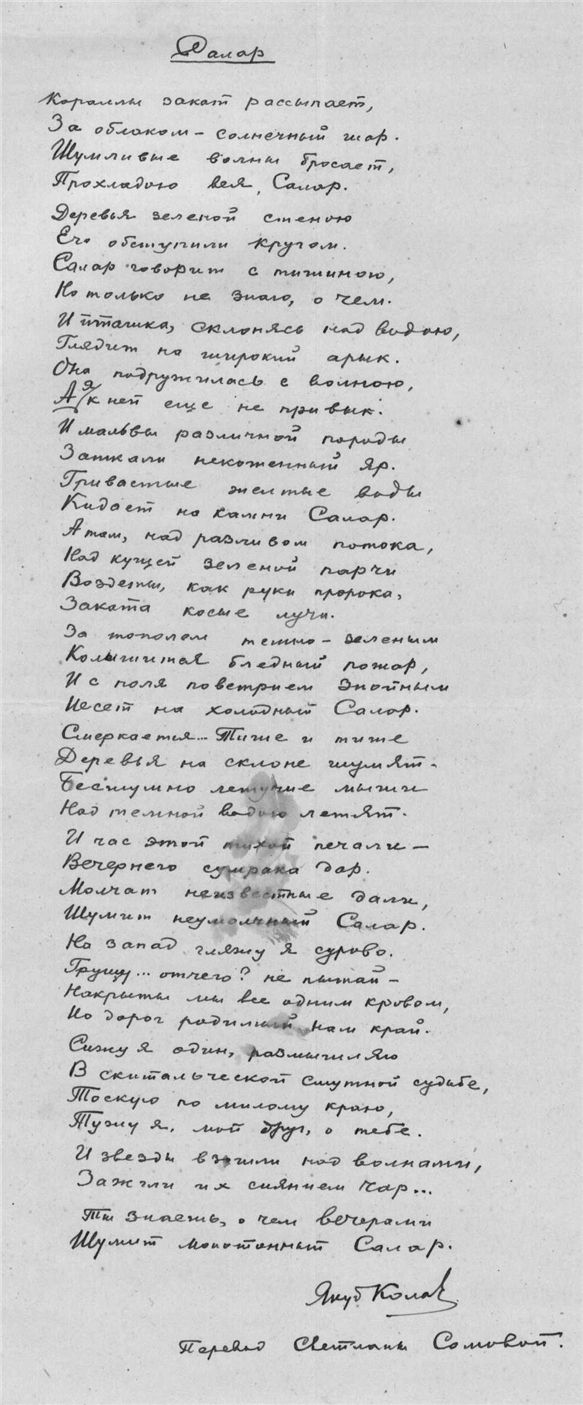 Салар
Кораллы закат рассыпает,
За облаком – солнечный шар.
Шумливые волны бросает,
Прохладою вея, Салар.
Деревья зеленой стеною
Его обступили кругом.
Салар говорит с тишиною,
Но только не знаю, о чем.
И пташка, склонясь над водою,
Глядит на широкий арык.
Она подружилась с волною,
А я к ней еще не привык.
И мальвы различной породы
Заткали некошенный яр.
Гривастые желтые воды
Кидает на камни Салар.
А там, над разливом потока,
Над кущей зеленой парчи
Воздеты, как руки пророка,
Заката косые лучи.
За тополем темно-зеленым
Колышится бледный пожар,
И с поля поветрием знойным
Несет на холодный Салар.
Смеркается... Тише и тише
Деревья на склоне шумят –
Бесшумно летучие мыши
Над темной водою летят.
И час этой тихой печали –
Вечернего сумрака дар.
Молчат неизвестные дали,
Шумит неумолчный Салар.
На запад гляжу я сурово.
Грущу... отчего? не пытай –
Накрыты мы все одним кровом,
Но дорог родимый нам край.
Сижу я один, размышляю
В скитальческой смутной судьбе,
Тоскую по милому краю,
Тужу я, мой друг, о тебе.
И звезды взошли над волнами,
Зажгли их сиянием чар...
Ты знаешь, о чем вечерами
Шумит монотонный Салар.
Якуб Колас
Перевод Светланы Сомовой.